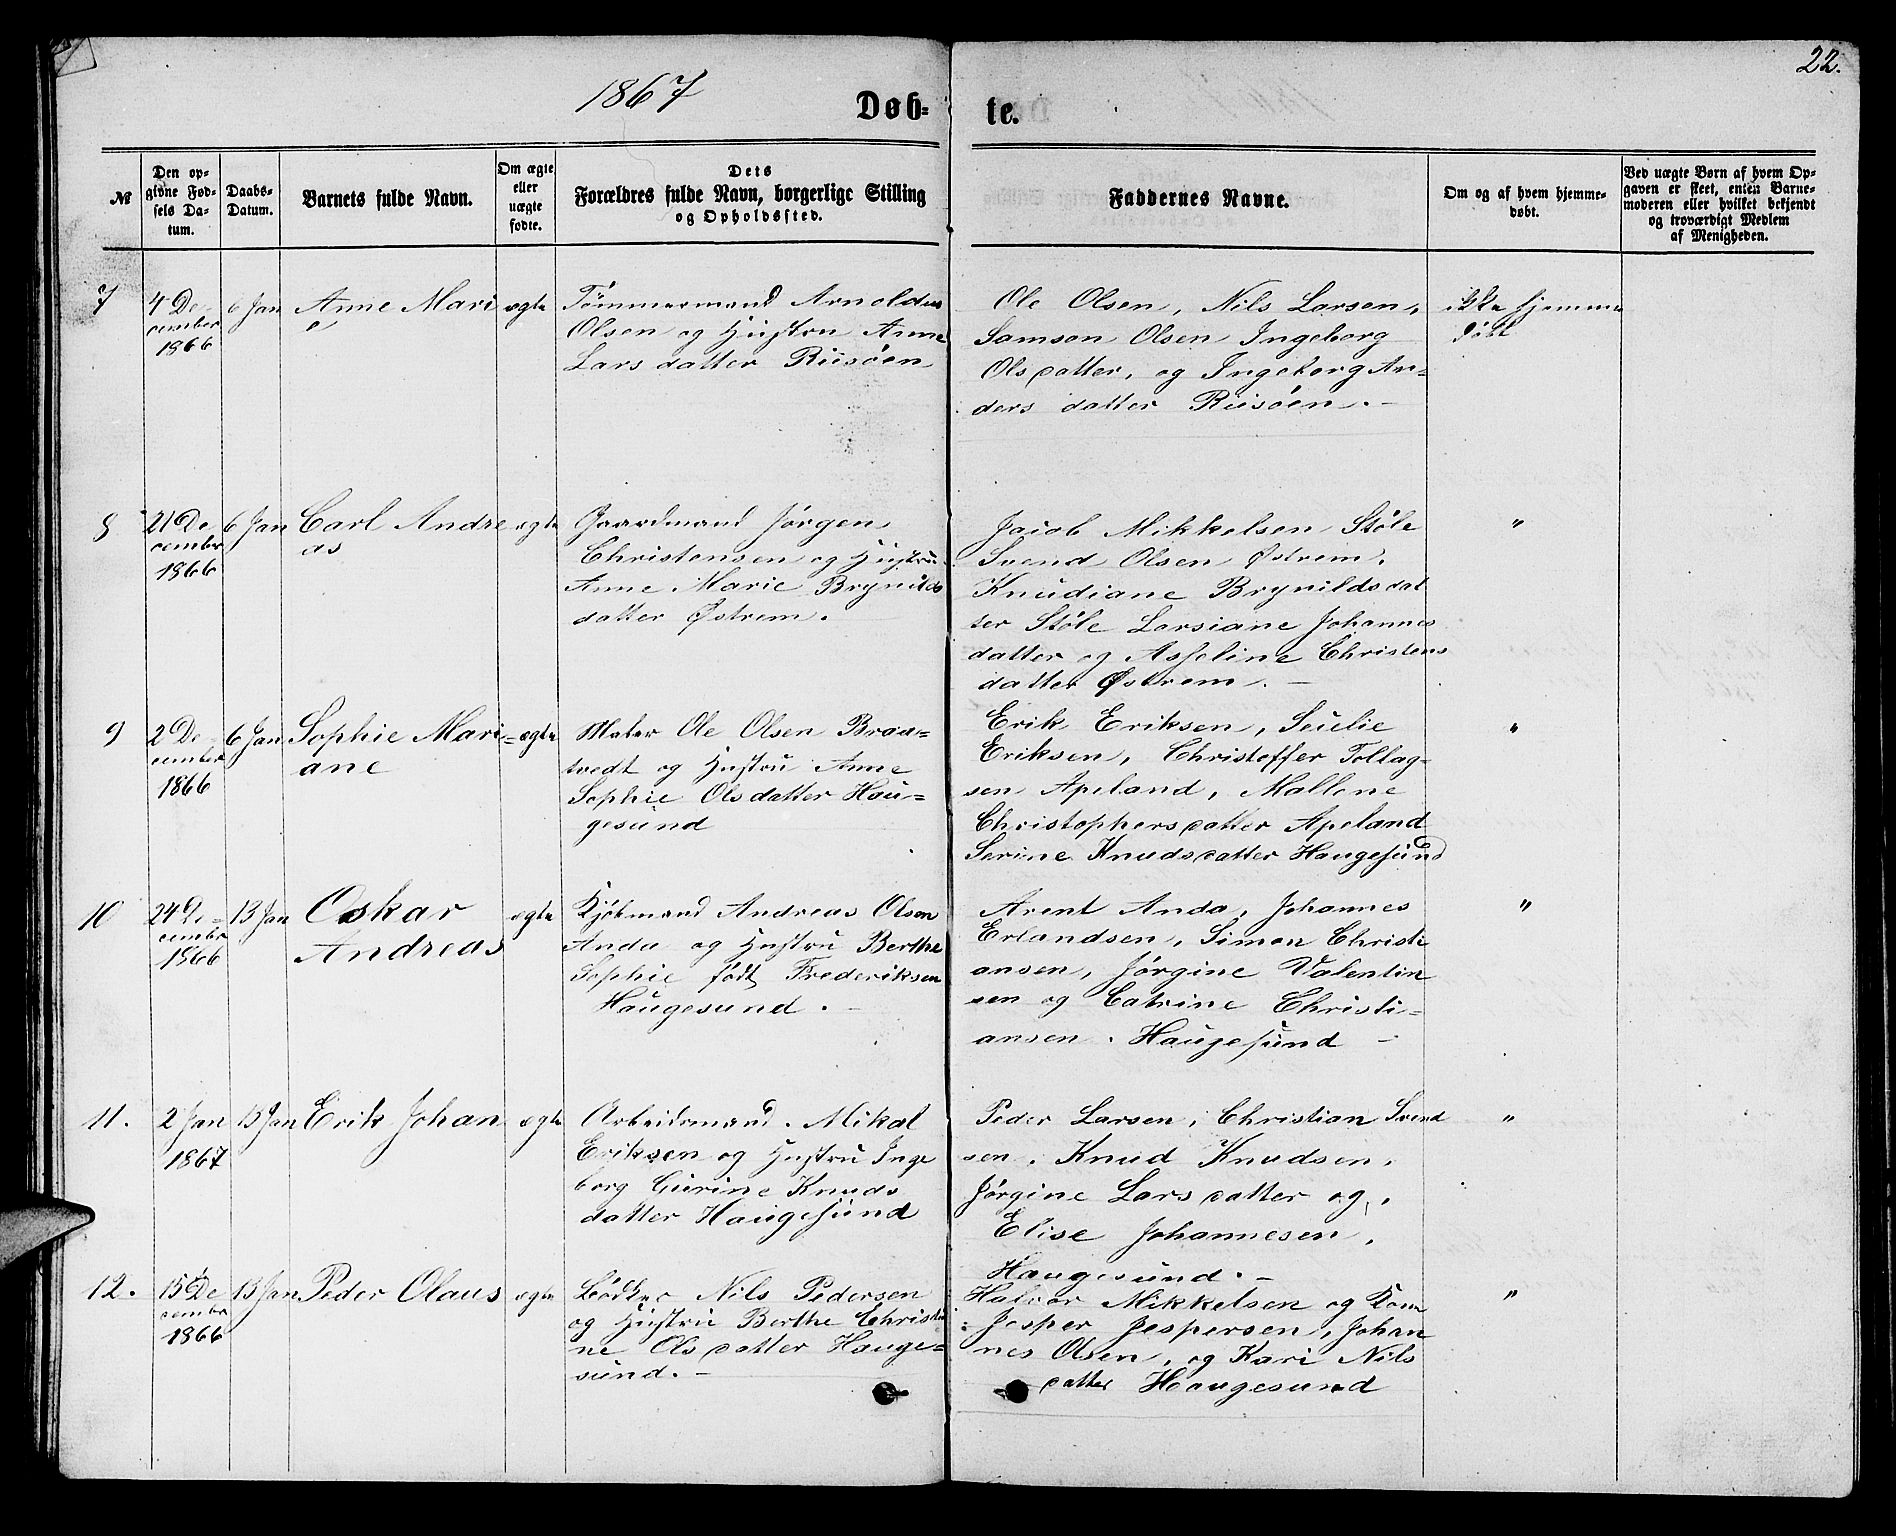 22.
1867
Døb-
te.
№
Den op-
givne Fød-
sels Da-
tum.
Daabs-
Datum.
Barnets fulde Navn.
Om ægte
eller
uægte
fødte.
Dets
Forældres fulde Navn, borgerlige Stilling
og Opholdssted.
Faddernes Navne.
Om og af hvem hjemme-
døbt.
Ved uægte Børn af hvem Op-
gaven er skeet, enten Barne-
moderen eller hvilket bekjendt
og troværdigt Medlem
af Menigheden.
7
4 De
cember
1866
6 Jan
Anne Mari
e
ægte
Tømmermand Arnoldus
Olsen og Hustru Anne
Lars datter Riisøen
Ole Olsen, Nils Larsen,
Samson Olsen Ingeborg
Olsdatter, og Ingeborg An-
ders datter Riisøen.-
ikke hjemme
døbt
8
21 De
cember
1866
6 Jan
Carl Andre
as
ægte
Gaardmand Jørgen
Christensen og Hustru
Anne Marie Brynilds
datter Østrem.
Jacob Mikkelsen Støle
Svend Olsen Østrem.
Knudiane Brynildsdat
ter Støle Larsiane Johannes
datter og Asseline Christens
datter Østrem.-
"
9
2 De-
cember
1866
6 Jan
Sophie Mari-
ane
ægte
Maler Ole Olsen Braa-
tvedt og Hustru Anne
Sophie Olsdatter Hau-
gesund
Erik Eriksen,
Eriksen, Christoffer Tollag-
sen Apeland, Mallene
Christophersdatter Apeland
Serine Knudsdatter Haugesund
"
10
24 De-
cembr
1866
13 Jan
Oskar
Andreas
ægte
Kjøbmand Andreas Olsen
Anda og Hustru Berthe
Sophie født Frederiksen
Haugesund.-
Arent Anda, Johannes
Erlandsen, Simon Christi
ansen, Jørgine Valentin
sen og Catrine Christi-
ansen. Haugesund -
"
11.
2 Jan
1867
13 Jan
Erik Johan
ægte
Arbeidsmand. Mikal
Eriksen og Hustru Inge
borg Gurine Knuds
datter Haugesund
Peder Larsen, Christian Svend
sen, Knud Knudsen,
Jørgine Larsdatter og,
Elise Johannesen,
Haugesund.-
"
12.
15 De
cembr
1866
13 Jan
Peder Olaus
ægte
Bødker Nils Pedersen
og Hustru Berthe Christi
ne Olsdatter Hauge-
sund.-
Halvor Mikkelsen og Kone
Jesper Jespersen, Johan
nes Olsen, og Kari Nils
datter Haugesund
"